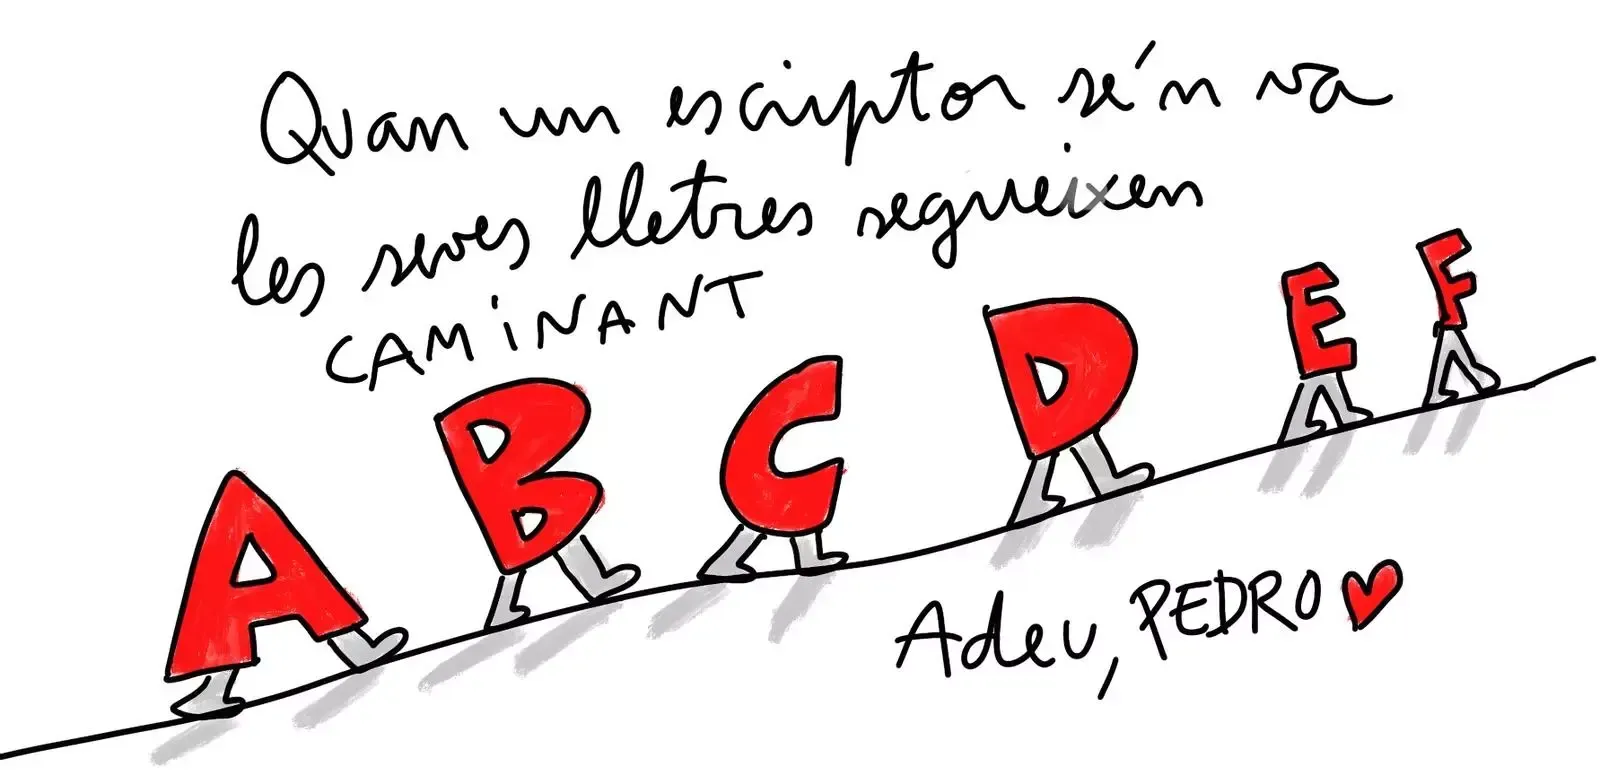 Quan un escriptor sé'n va
les seves lletres segueixen
CAMiNANT
A B C D E F
Adeu, PEDRO